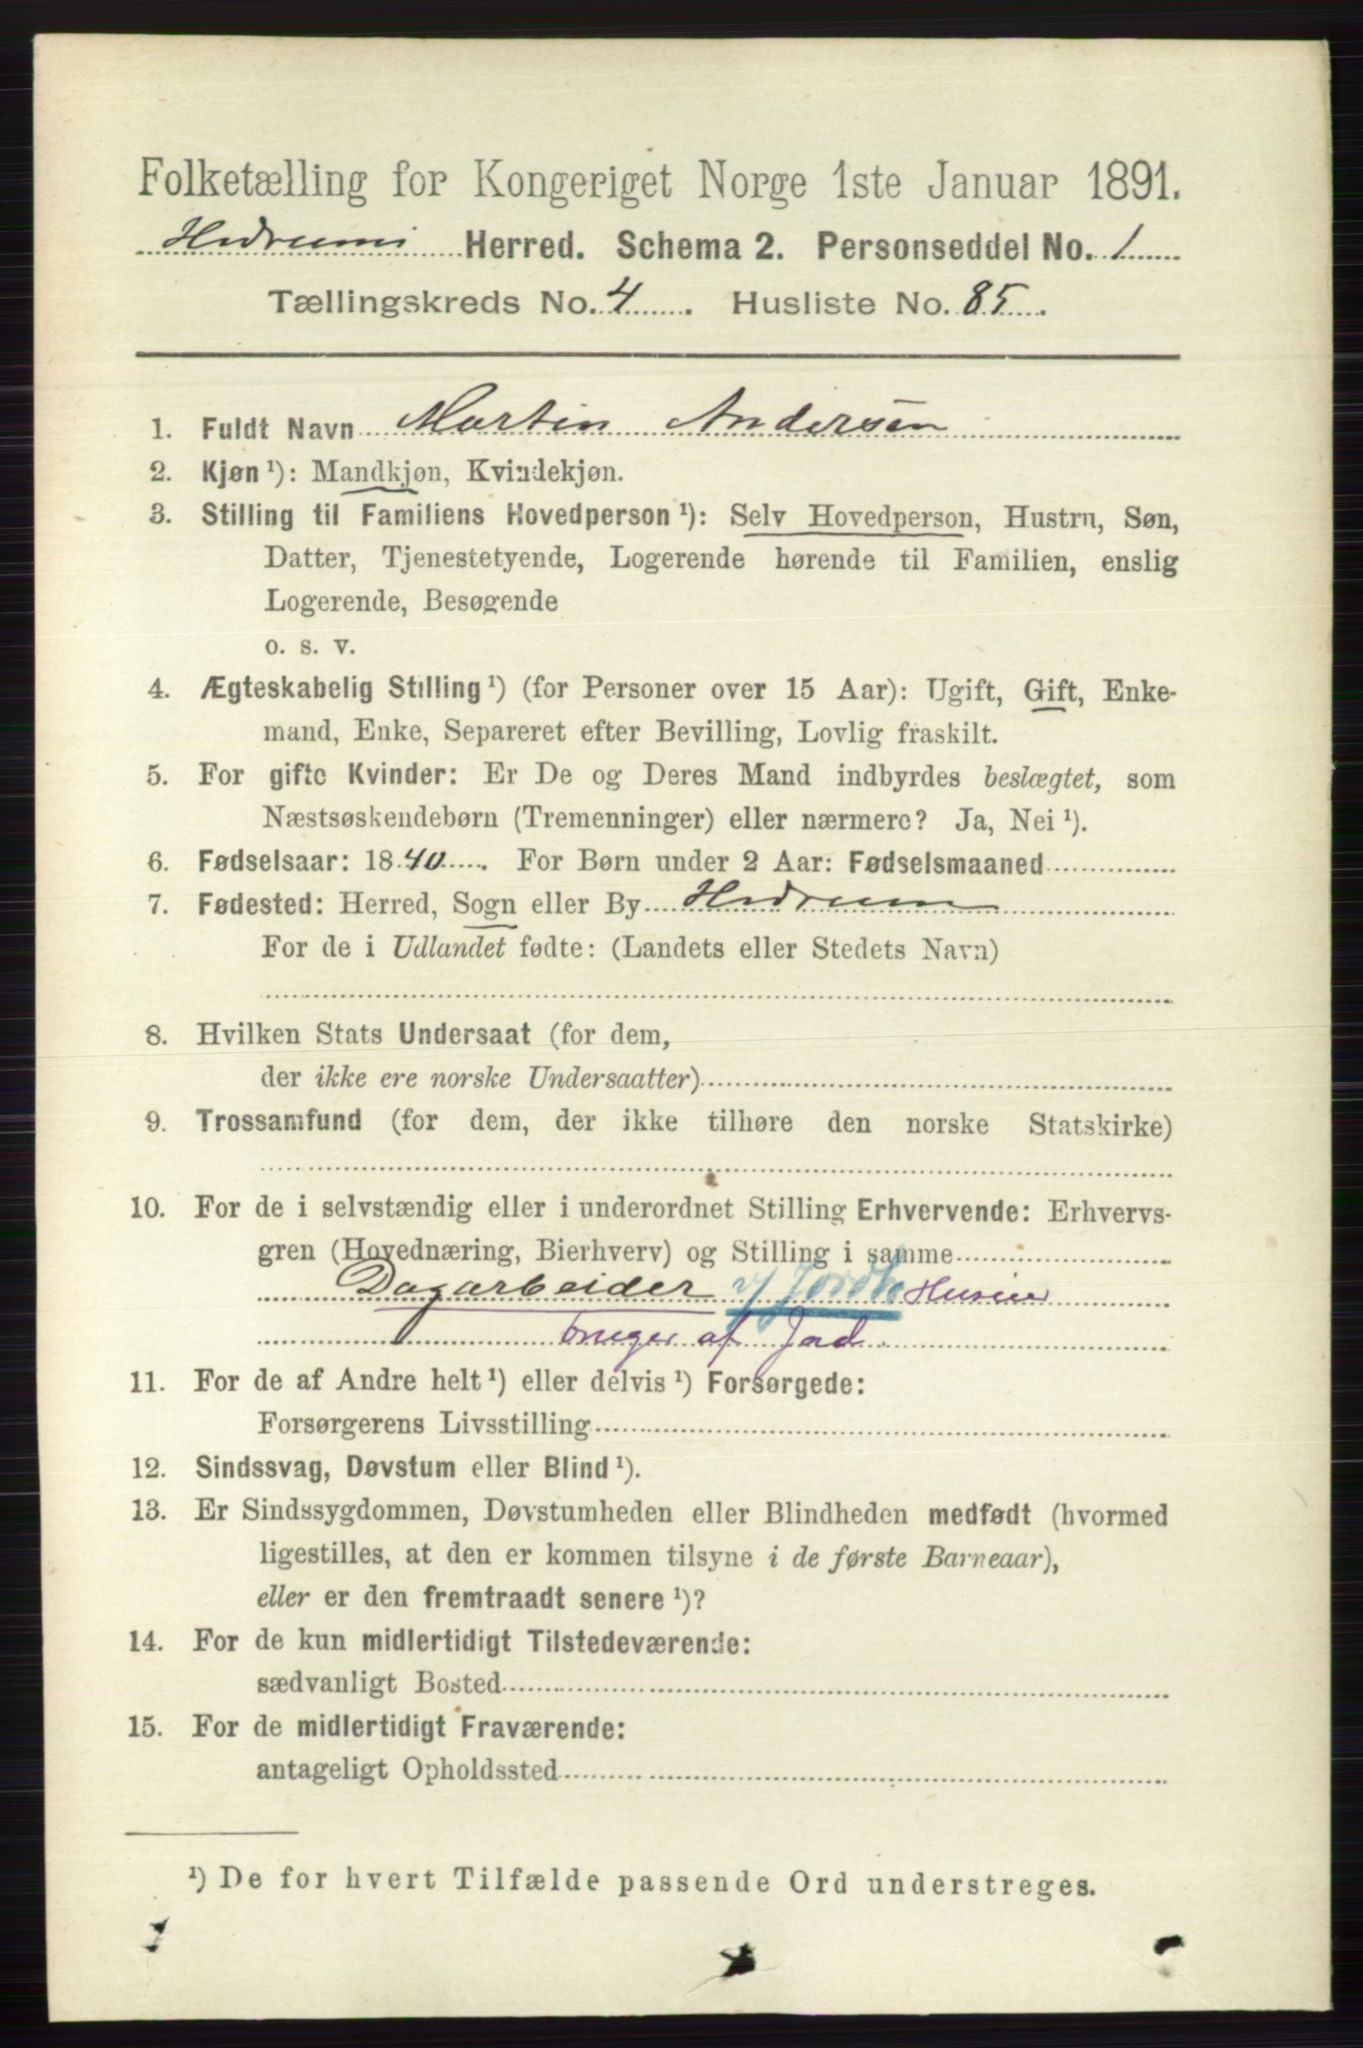 Folketælling for Kongeriget Norge 1ste Januar 1891.
Hedrum Herred. Schema 2. Personseddel No. 1
Tællingskreds No. 4. Husliste No. 85.
1. Fuldt Navn Martin Andersen
2. Kjøn ¹): Mandkjøn, Kvindekjøn.
3. Stilling til Familiens Hovedperson ¹): Selv Hovedperson, Hustru, Søn,
Datter, Tjenestetyende, Logerende hørende til Familien, enslig
Logerende, Besøgende
o. s. v.
4. Ægteskabelig Stilling ¹) (for Personer over 15 Aar): Ugift, Gift, Enke-
mand, Enke, Separeret efter Bevilling, Lovlig fraskilt.
5. For gifte Kvinder: Er De og Deres Mand indbyrdes beslægtet, som
Næstsøskendebørn (Tremenninger) eller nærmere? Ja, Nei ¹).
6. Fødselsaar: 1840. For Børn under 2 Aar: Fødselsmaaned
7. Fødested: Herred, Sogn eller By Hedrum
For de i Udlandet fødte: (Landets eller Stedets Navn)
8. Hvilken Stats Undersaat (for dem,
der ikke ere norske Undersaatter)
9. Trossamfund (for dem, der ikke tilhøre den norske Statskirke)
10. For de i selvstændig eller i underordnet Stilling Erhvervende: Erhvervs-
gren (Hovednæring, Bierhverv) og Stilling i samme
Dagarbeider v/ Jordb
bruger af Jord
11. For de af Andre helt ¹) eller delvis ¹) Forsørgede:
Forsørgerens Livsstilling
12. Sindssvag, Døvstum eller Blind ¹).
13. Er Sindssygdommen, Døvstumheden eller Blindheden medfødt (hvormed
ligestilles, at den er kommen tilsyne i de første Barneaar),
eller er den fremtraadt senere ¹)?
14. For de kun midlertidigt Tilstedeværende:
sædvanligt Bosted
15. For de midlertidigt Fraværende:
antageligt Opholdssted
¹) De for hvert Tilfælde passende Ord understreges.